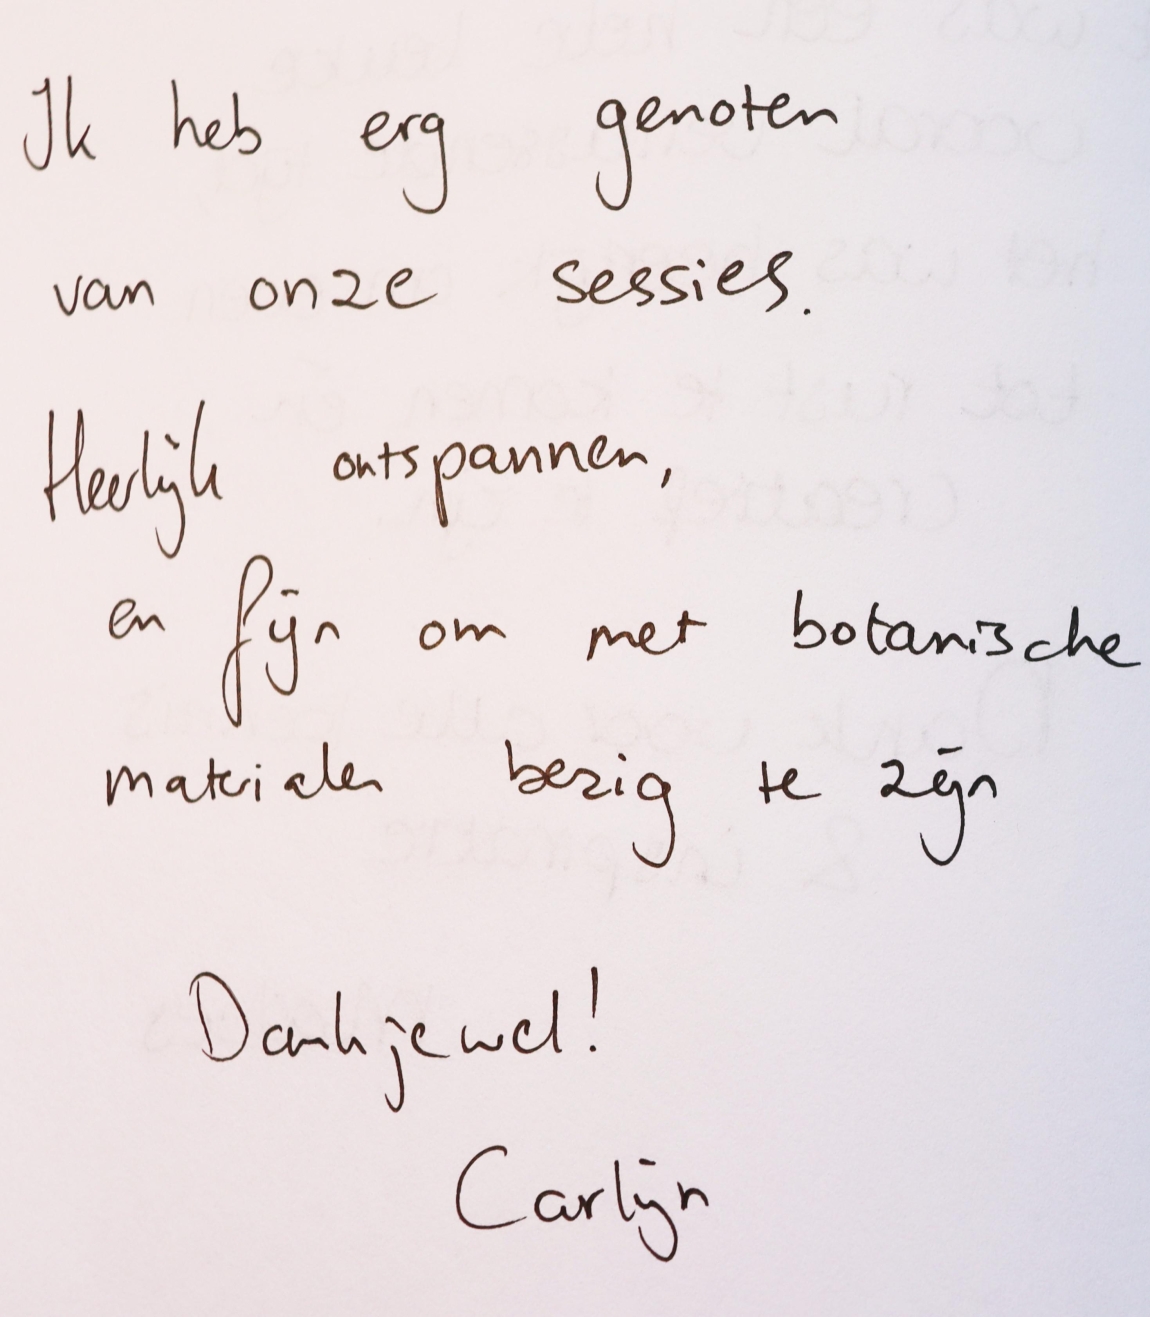 Ik heb erg genoten
van onze sessies.
Heerlijk ontspannen,
en fijn om met botanische
materialen bezig te zijn
Dankjewel!
Carlijn